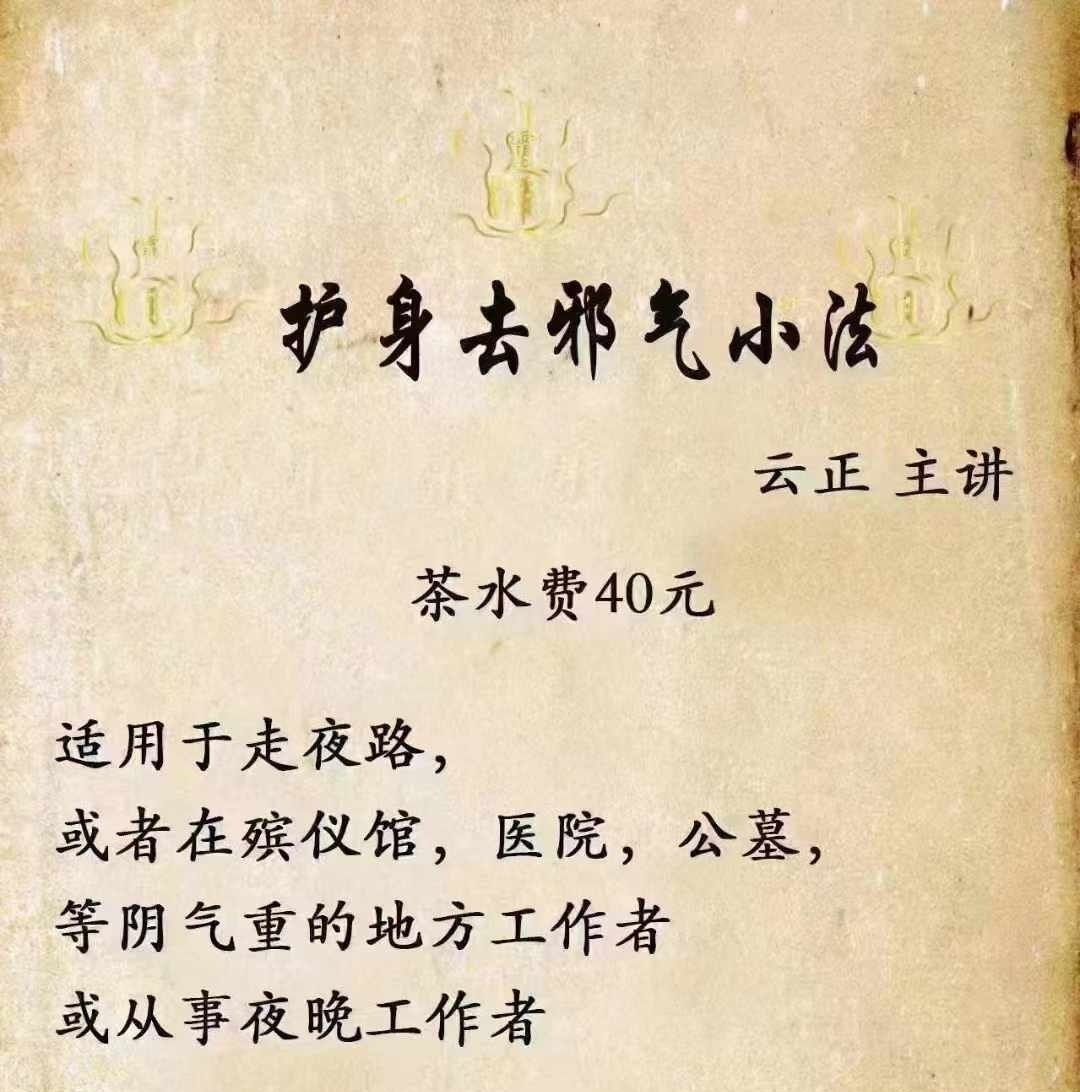 护身去邪气小法
云正 主讲
茶水费40元
适用于走夜路，
或者在殡仪馆，医院，公墓，
等阴气重的地方工作者
或从事夜晚工作者